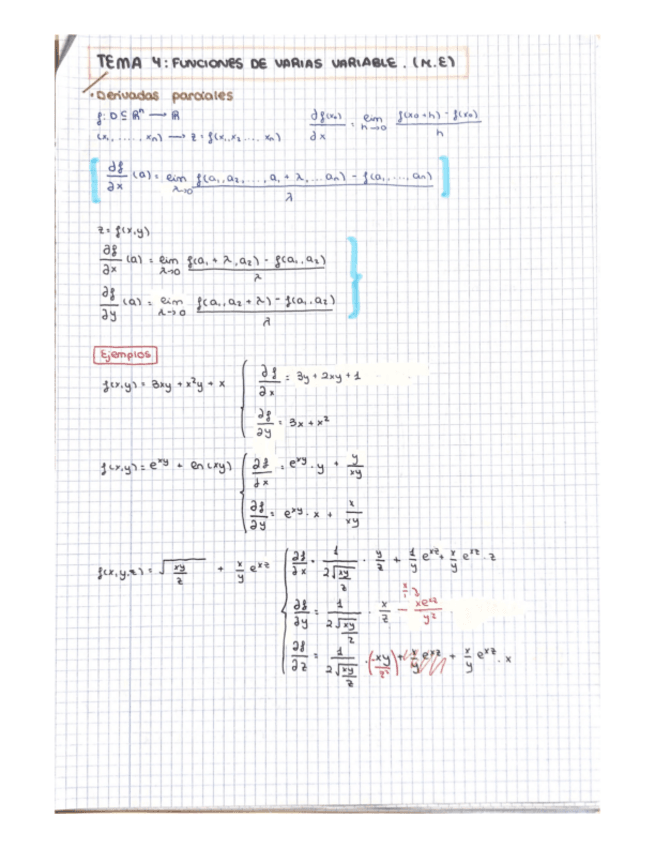 TEMA 4: FUNCIONES DE VARIAS VARIABLE. (M.E)
• Derivadas parciales
f: D ⊆ ℝⁿ → ℝ
(x₁, ....., xₙ) → z = f(x₁, x₂ .... xₙ)
∂f(x₀)/∂x = lim h→0 (f(x₀+h) - f(x₀))/h
∂f/∂x (a) = lim λ→0 (f(a₁, a₂, ..., aᵢ + λ, ... aₙ) - f(a₁, ..., aₙ))/λ
z = f(x,y)
∂f/∂x (a) = lim λ→0 (f(a₁ + λ, a₂) - f(a₁, a₂))/λ
∂f/∂y (a) = lim λ→0 (f(a₁, a₂ + λ) - f(a₁, a₂))/λ
Ejemplos
f(x,y) = 3xy + x²y + x
∂f/∂x = 3y + 2xy + 1
∂f/∂y = 3x + x²
f(x,y) = e^xy + ln(xy)
∂f/∂x = e^xy · y + y/xy
∂f/∂y = e^xy · x + x/xy
f(x,y,z) = √(xy/z) + x/y e^xz
∂f/∂x = 1/(2√(xy/z)) · y/z + 1/y e^xz + x/y e^xz · z
∂f/∂y = 1/(2√(xy/z)) · x/z - xe^xz/y²
∂f/∂z = 1/(2√(xy/z)) · (-xy/z²) + x/y e^xz + x/y e^xz · x